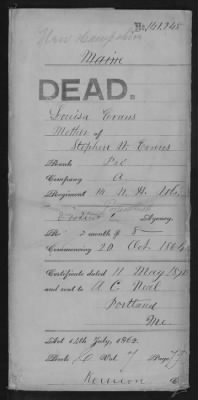 No. 141,248
New Hampshire
Maine
DEAD.
Louisa Evans
Mother of
Stephen W. Evans
Rank Pvt
Company A
Regiment N. H. Vols
Agency.
Per month $ 8
Commencing 20 Oct 1864
Certificate dated 11 May 1870
and sent to A. C. Neal
Portland
Me.
Act 14th July, 1862.
Book C Vol. 7 Page 77